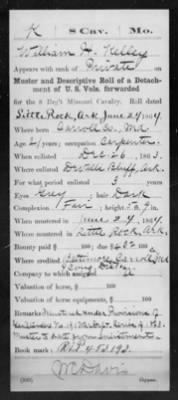 K 8 Cav. Mo.
William H. Kelley
Appears with rank of Private on
Muster and Descriptive Roll of a Detach-
ment of U. S. Vols. forwarded
for the 8 Reg't Missouri Cavalry. Roll dated
Little Rock, Ark, June 29, 1864.
Where born Carroll Co., Md.
Age 21 years; occupation Carpenter.
When enlisted Oct. 26, 1863.
Where enlisted Duvalls Bluff, Ark.
For what period enlisted 3 years.
Eyes Grey; hair Dark
Complexion Fair; height 5 ft. 9 in.
When mustered in June 29, 1864.
Where mustered in Little Rock, Ark.
Bounty paid $ 100; due $ 100
Where credited Baltimore, Carroll
To what company assigned
Valuation of horse, $ 100
Valuation of horse equipments, $ 100
Remarks: under Provisions of
Muster to date from Enlistment.
Book mark:
Davis
Copyist.